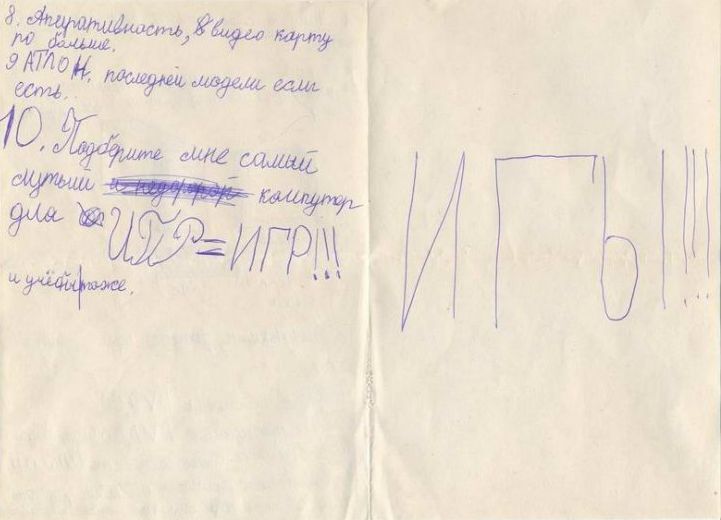 8. Аперативность, в видео карту
по больше.
9 АТЛОН. последней модели если
есть.
10. Подберите мне самый
лутьший и недорогой компутор
для ИГР=ИГР!!!
и учёбы тоже.
ИГЫ!!!